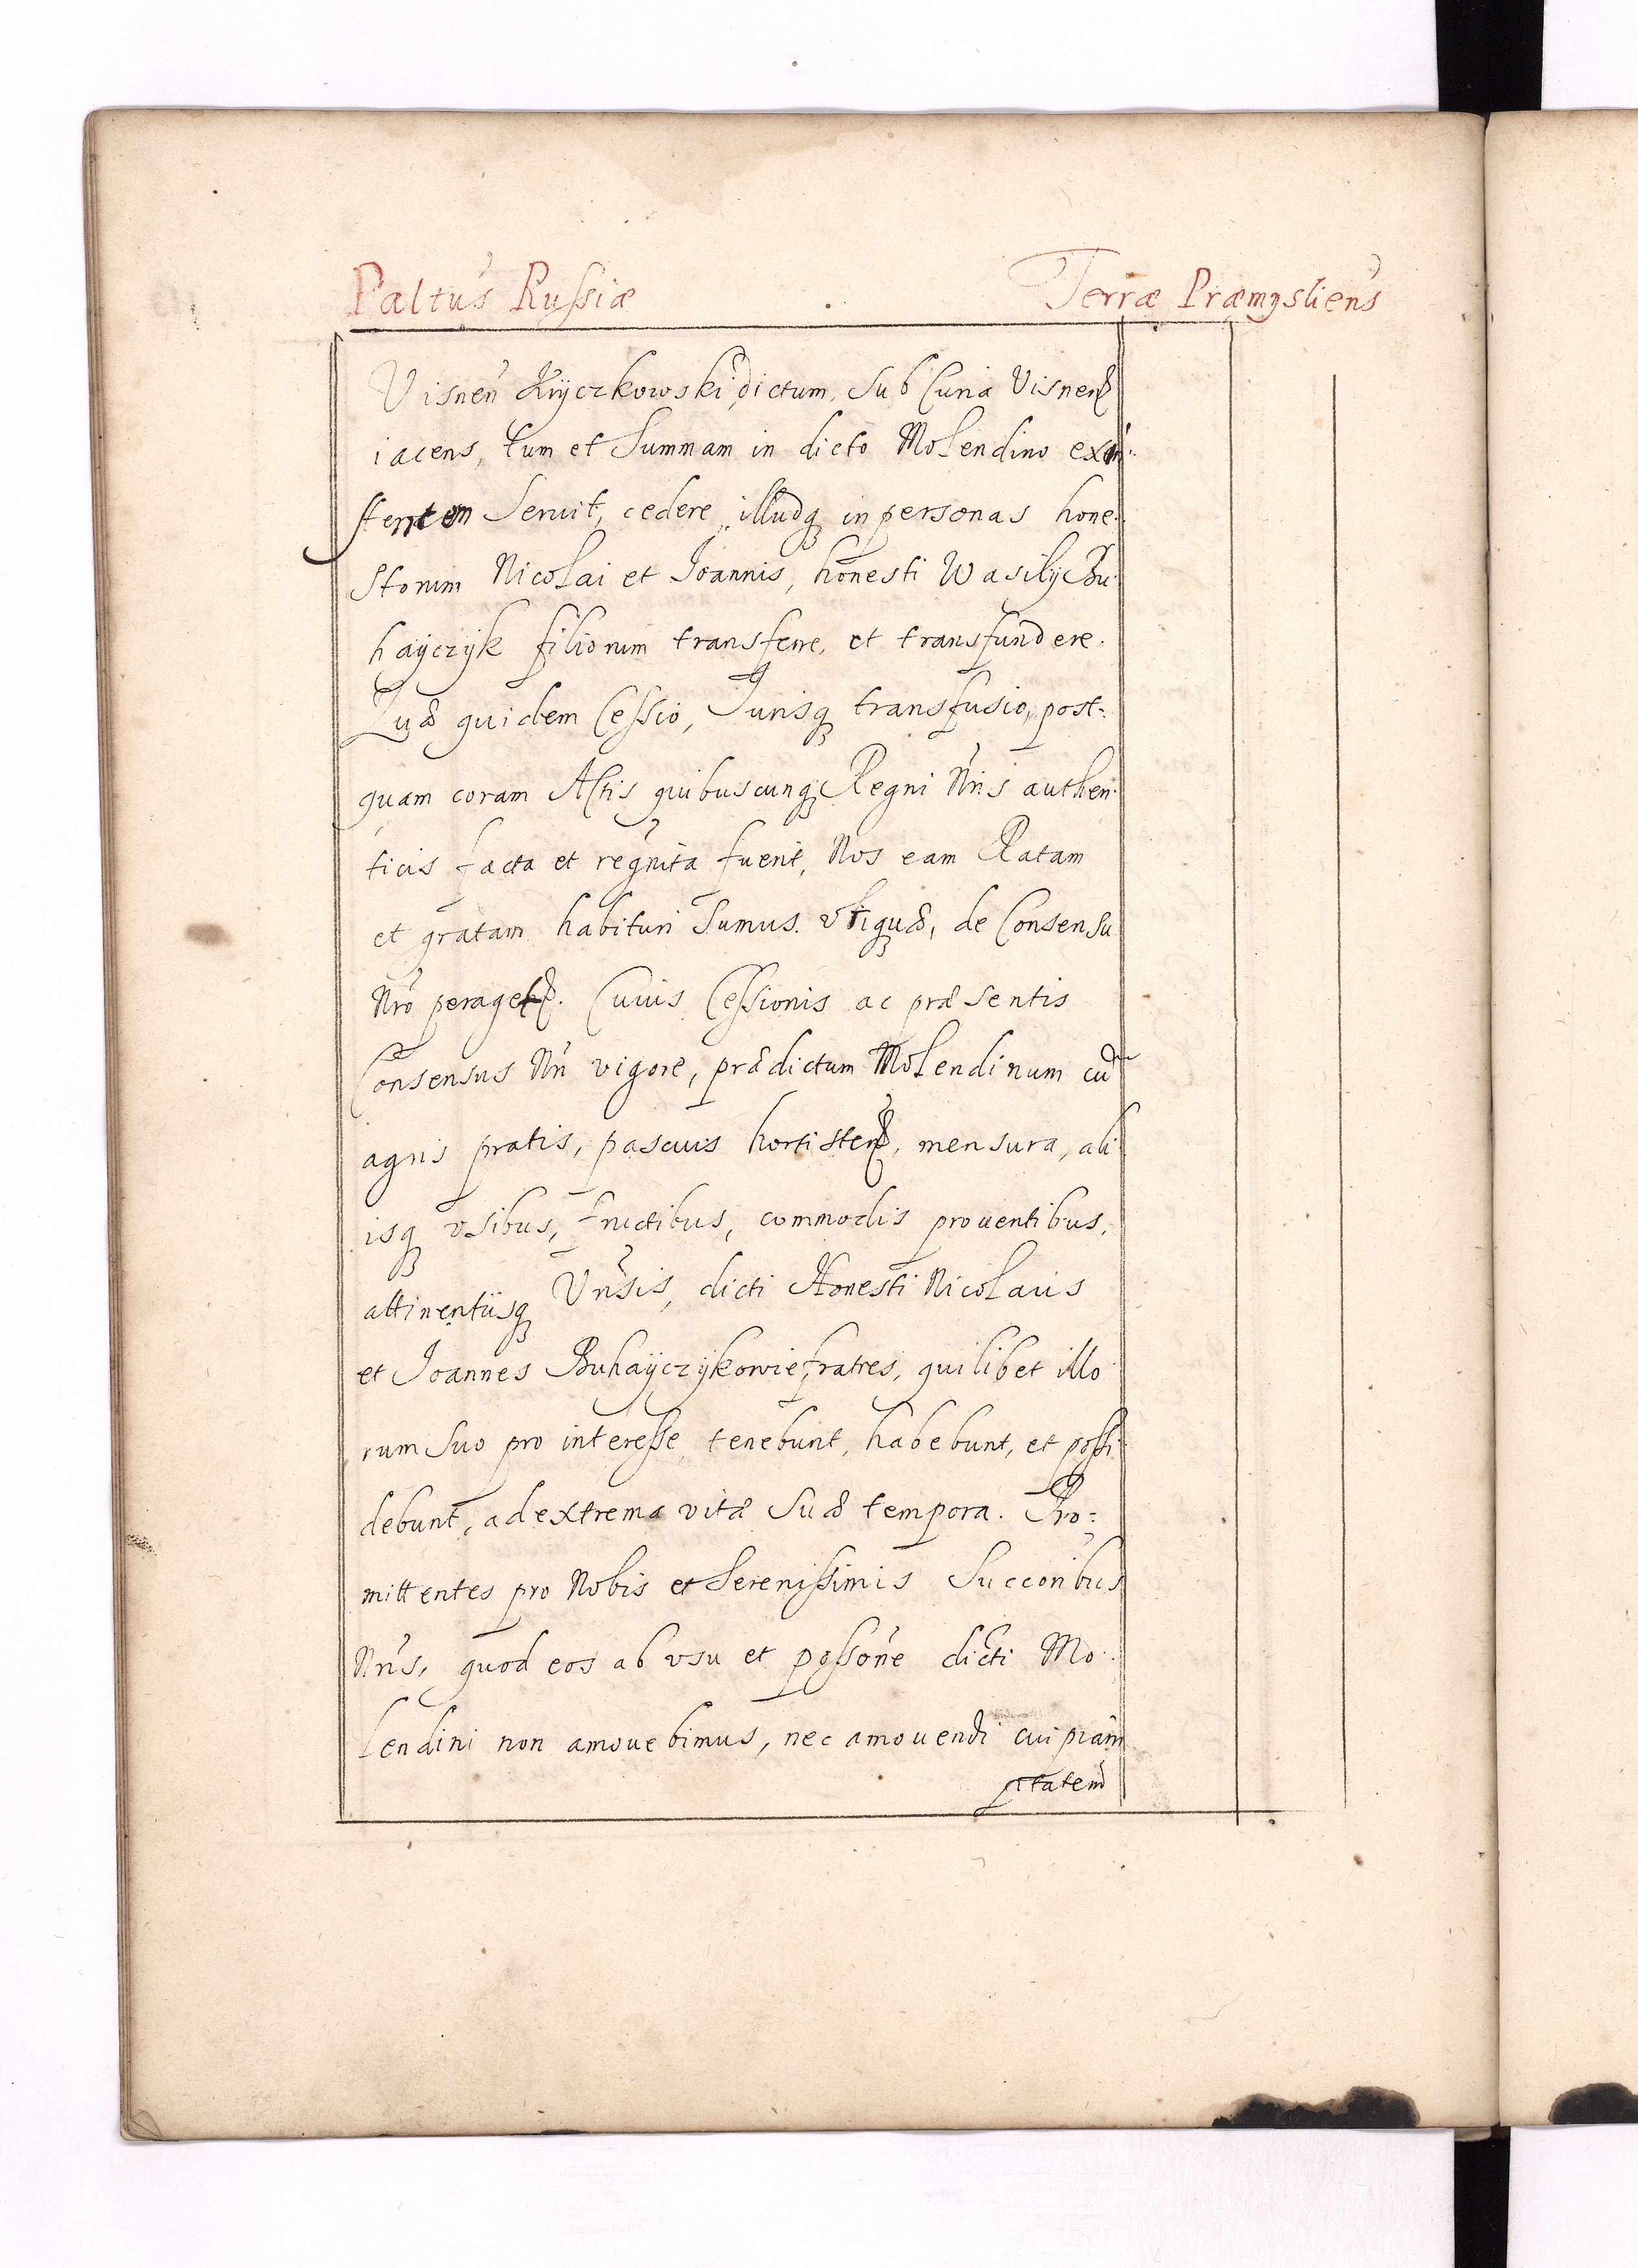 Paltus Russiæ Terræ Præmysliens
Visnen Kijczkowski dictum, Sub Curia Visnen
iacens, tum et Summam in dicto Molendino exi-
stentem Seruit, cedere, illudq in personas hone-
storum Nicolai et Joannis, honesti Wasilij Bu-
hayczyk filiorum transferre, et transfundere.
Quæ quidem Cessio, Jurisq transfusio, post-
quam coram Actis quibuscunq Regni Nris authen-
ticis facta et regnita fuerit, Nos eam Ratam
et gratam habituri Sumus. vtiquæ, de Consensu
Nro perages. Cuius Cessionis ac præsentis
Consensus Nri vigore, prædictum Molendinum cu
agris pratis, pascuis horti sten, mensura, ali-
isq vsibus, fructibus, commodis prouentibus,
attinentiisq Vnsis, dicti Honesti Nicolaus
et Joannes Buhayczykowie, fratres, quilibet illo-
rum Suo pro interesse, tenebunt, habebunt, et possi-
debunt, ad extrema vitæ Suæ tempora. Pro-
mittentes pro Nobis et Serenissimis Succoribus
Nris, quod eos ab vsu et possone dicti Mo-
lendini non amouebimus, nec amouendi cuipiam
ptatem